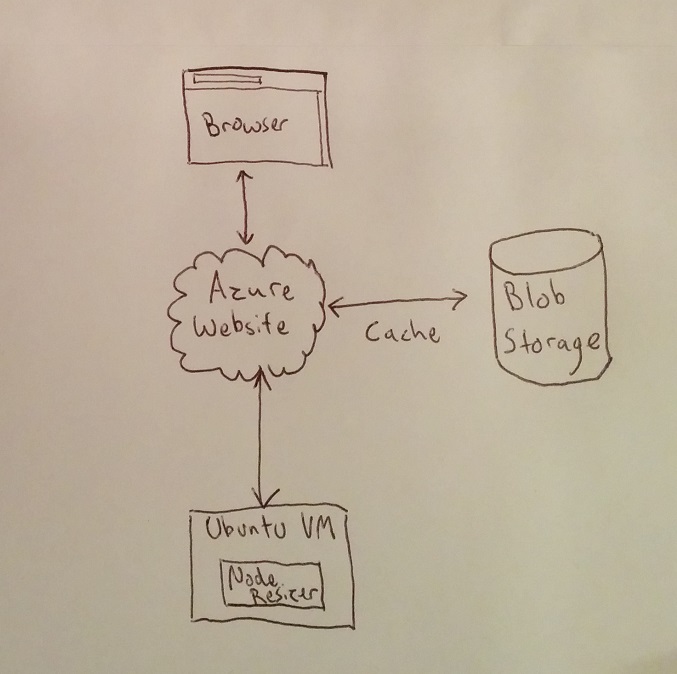 Browser
Azure
Website
Cache
Blob
Storage
Ubuntu VM
Node
Resizer